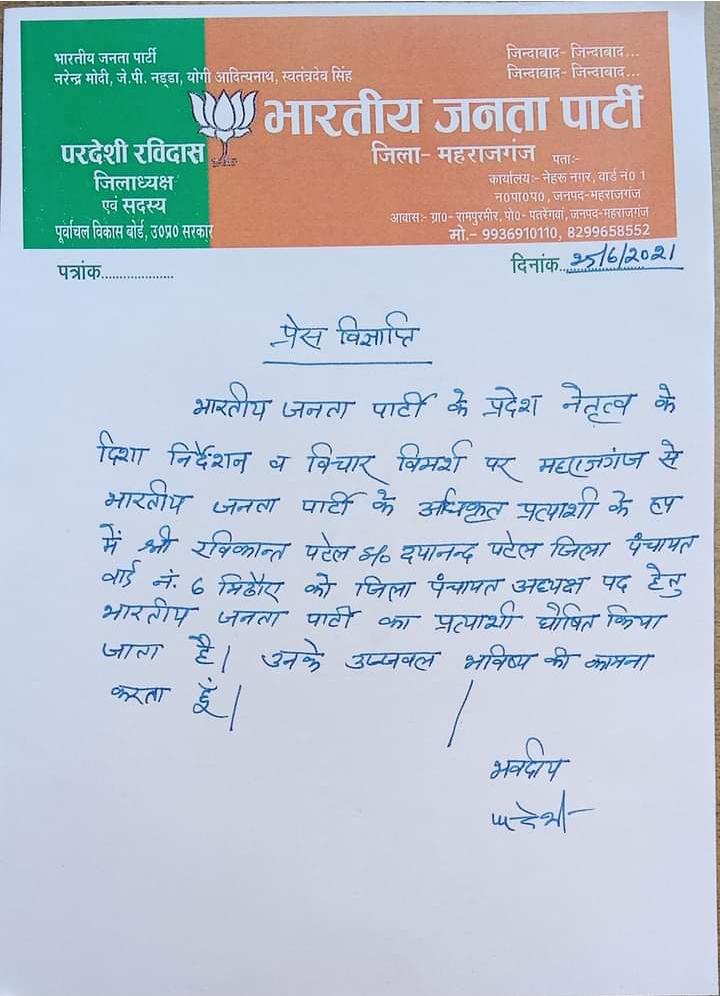 भारतीय जनता पार्टी
नरेन्द्र मोदी, जे.पी. नड्डा, योगी आदित्यनाथ, स्वतंत्रदेव सिंह
जिन्दाबाद- जिन्दाबाद...
जिन्दाबाद- जिन्दाबाद...
भारतीय जनता पार्टी
परदेशी रविदास
जिलाध्यक्ष
एवं सदस्य
पूर्वांचल विकास बोर्ड, उ०प्र० सरकार
जिला- महराजगंज पताः-
कार्यालयः- नेहरू नगर, वार्ड नं० 1
न०पा०प०, जनपद-महराजगंज
आवासः- ग्रा०- रामपुरमीर, पो०- पतरेंगवां, जनपद-महराजगंज
मो.- 9936910110, 8299658552
पत्रांक....................
दिनांक..25/6/2021
प्रेस विज्ञप्ति
भारतीय जनता पार्टी के प्रदेश नेतृत्व के
दिशा निर्देशन व विचार विमर्श पर महराजगंज से
भारतीय जनता पार्टी के अधिकृत प्रत्याशी के रूप
में श्री रविकान्त पटेल S/o दयानन्द पटेल जिला पंचायत
वार्ड नं. 6 को जिला पंचायत अध्यक्ष पद हेतु
भारतीय जनता पार्टी का प्रत्याशी घोषित किया
जाता है। उनके उज्जवल भविष्य की कामना
करता हूँ।
भवदीय